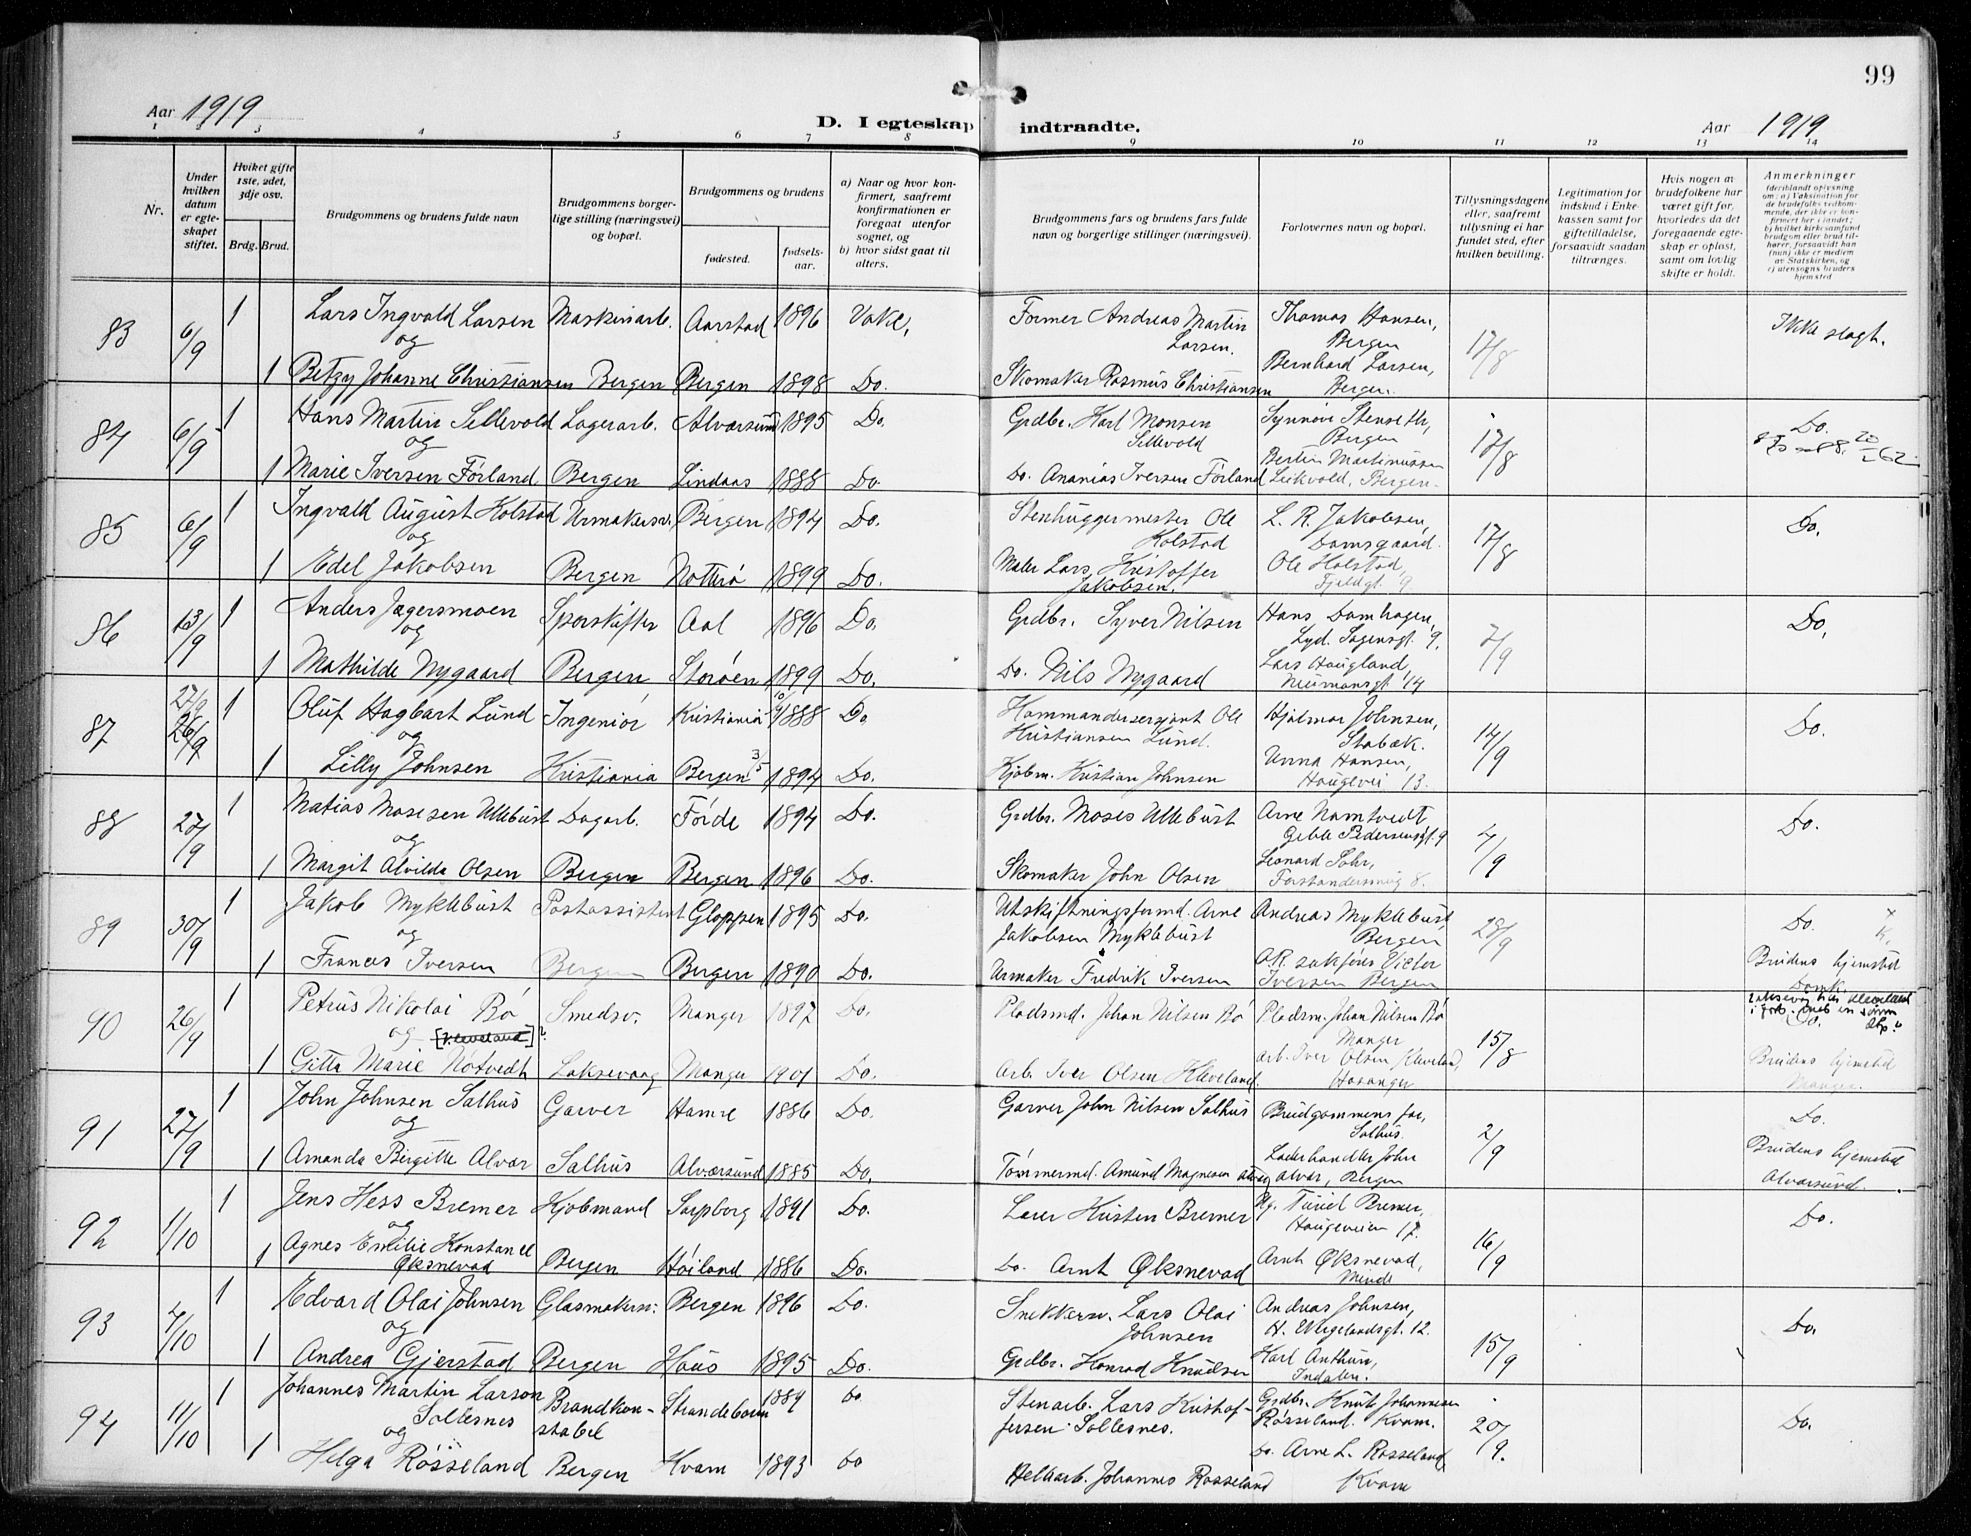 99
Aar 1919
D. I egteskap indtraadte.
Aar 1919
1 2 3 4 5 6 7 8 9 10 11 12 13 14
Nr.
Under hvilken datum er egteskapet stiftet.
Hvilket gifte 1ste, 2det, 3dje osv.
Brdg. Brud.
Brudgommens og brudens fulde navn
Brudgommens borgerlige stilling (næringsvei) og bopæl.
Brudgommens og brudens
fødested.
fødselsaar.
a) Naar og hvor konfirmert, saafremt konfirmationen er foregaat utenfor sognet, og
b) hvor sidst gaat til alters.
Brudgommens fars og brudens fars fulde navn og borgerlige stillinger (næringsvei).
Forlovernes navn og bopæl.
Tillysningsdagene eller, saafremt tillysning ei har fundet sted, efter hvilken bevilling.
Legitimation for indskud i Enkekassen samt for giftetilladelse, forsaavidt saadan tiltrænges.
Hvis nogen av brudefolkene har været gift før, hvorledes da det foregaaende egteskap er opløst, samt om lovlig skifte er holdt.
Anmerkninger
(deriblandt oplysning om: a) Vaksination for de brudefolks vedkommende, der ikke er konfirmert her i landet; b) hvilket kirkesamfund brudgom eller brud tilhører, forsaavidt han (hun) ikke er medlem av Statskirken, og c) utensogns bruders hjemsted
83 6/9 1 Lars Ingvald Larsen Maskinarb. Aarstad 1896 Vakc. Former Andreas Martin Larsen. Thomas Hansen, Bergen 17/8 Ikke slegt.
og
1 Betzy Johanne Christiansen Bergen Bergen 1898 Do. Skomaker Rasmus Christiansen Bernhard Larsen, Bergen.
84 6/9 1 Hans Martin Sellevold Lagerarb. Alversund 1895 Do. Grdbr. Karl Monsen Sellevold Synnøve Stenseth, Bergen 17/8 Do.
og
1 Marie Iversen Førland Bergen Lindaas 1888 Do. Do. Ananias Iversen Førland Bertin Martinussen Leikvold, Bergen.
85 6/9 1 Ingvald August Kolstad Urmakersv. Bergen 1894 Do. Stenhuggermester Ole Kolstad L. R. Jakobsen, Damsgaard. 17/8 Do.
og
1 Edel Jakobsen Bergen Nøtterø 1899 Do. Maler Lars Kristoffer Jakobsen. Ole Kolstad, Fjeldgt. 9
86 13/9 1 Anders Jegersmoen Sporskifter Aal 1896 Do. Grdbr. Syver Nilsen Hans Domhagen, Lyd. Sagensgt. 9. 7/9 Do.
og
1 Mathilde Nygaard Bergen Storøen 1899 Do. Do. Nils Nygaard Lars Haugland, Neumansgt. 14
87 27/9 26/9 1 Oluf Hagbart Lund Ingeniør Kristiania 1888 Do Kommandersergant Ole Kristiansen Lund. Hjalmar Johnsen, Stabæk. 14/9 Do.
og
1 Lilly Johnsen Kristiania Bergen 3/5 1894 Do. Kjøbm. Kristian Johnsen Anna Hansen, Haugevei 13.
88 27/9 1 Matias Mosesen Ullebust Dagarb. Førde 1894 Do. Grdbr. Moses Ullebust Arne Namtvedt Geble Pedersensgt. 9 4/9 Do.
og
1 Margit Alvilda Olsen Bergen Bergen 1896 Do. Skomaker John Olsen Leonard Sohr, Forstandersmug 8.
89 30/9 1 Jakob Myklebust Postassistent Gloppen 1895 Do. Utskiftningsformd. Arne Jakobsen Myklebust Andreas Myklebust, Bergen 28/9 Do.
og
1 Frances Iversen Bergen Bergen 1890 Do. Urmaker Fredrik Iversen O.R. sakfører Victor Iversen Bergen Brudens hjemsted Domk.
90 26/9 1 Petrus Nikolai Bø Smedsv. Manger 1897 Do. Pladsmd. Johan Nilsen Bø Pladsm. Johan Nilsen Bø Manger 15/8 Do.
og [Kleveland]?
1 Gitta Marie Nøtvedt Laksevaag Manger 1901 Do. Arb. Iver Olsen Kleveland. Arb. Iver Olsen Kleveland, Hosanger Brudens hjemsted Manger.
91 27/9 1 John Johnsen Salhus Garver Hamre 1886 Do. Garver John Nilsen Salhus Brudgommens far, Salhus. 2/9 Do.
og
1 Amanda Birgitte Alver Salhus Alversund 1885 Do. Tømmermd. Amund Magnesen Alver Læderhandler John Alver, Bergen Brudens hjemsted Alversund.
92 1/10 1 Jens Hess Bremer Kjøbmand Sarpsborg 1891 Do. Lærer Kristen Bremer Turid Bremer, Haugeveien 17. 16/9 Do.
og
1 Agnes Emilie Konstance Øksnevad Bergen Høiland 1886 Do. Do. Arnt Øksnevad Arnt Øksnevad, Minde
93 4/10 1 Edvard Olai Johnsen Glasmakersv. Bergen 1896 Do. Snekkersv. Lars Olai Johnsen Andreas Johnsen, H. Wergelandsgt. 12. 15/9 Do.
og
1 Andrea Gjerstad Bergen Haus 1895 Do. Grdbr. Konrad Knudsen Karl Anthun, Indalen.
94 11/10 1 Johannes Martin Larson Sollesnes Brandkonstabel Strandebarm 1889 Do Stenarb. Lars Kristoffersen Sollesnes. Grdbr. Knut Johannesen Røsseland. Kvam. 20/9. Do.
og
1 Helga Røsseland Bergen Kvam 1893 Do Hellearb. Johannes Røsseland Do. Arne L. Røsseland Kvam